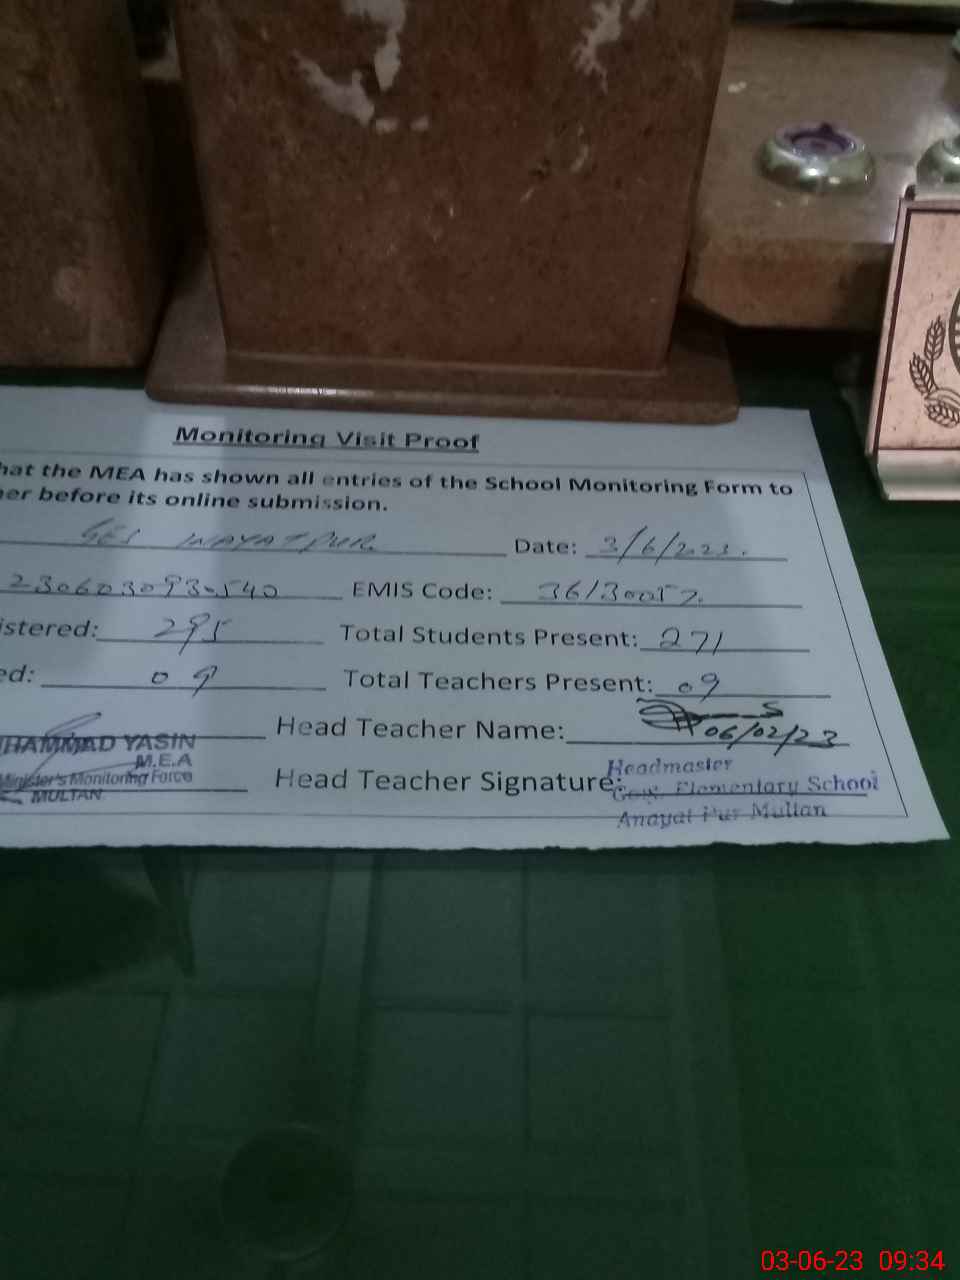 Monitoring Visit Proof
hat the MEA has shown all entries of the School Monitoring Form to
er before its online submission.
GES INAYATPUR Date: 3/6/2023.
230603093540 EMIS Code: 36130057
istered: 295 Total Students Present: 271
ed: 09 Total Teachers Present: 09
Head Teacher Name: 06/02/23
HAMMAD YASIN
M.E.A
Minister's Monitoring Force
MULTAN
Head Teacher Signature:
Headmaster
Govt. Elementary School
Anayat Pur Multan
03-06-23 09:34